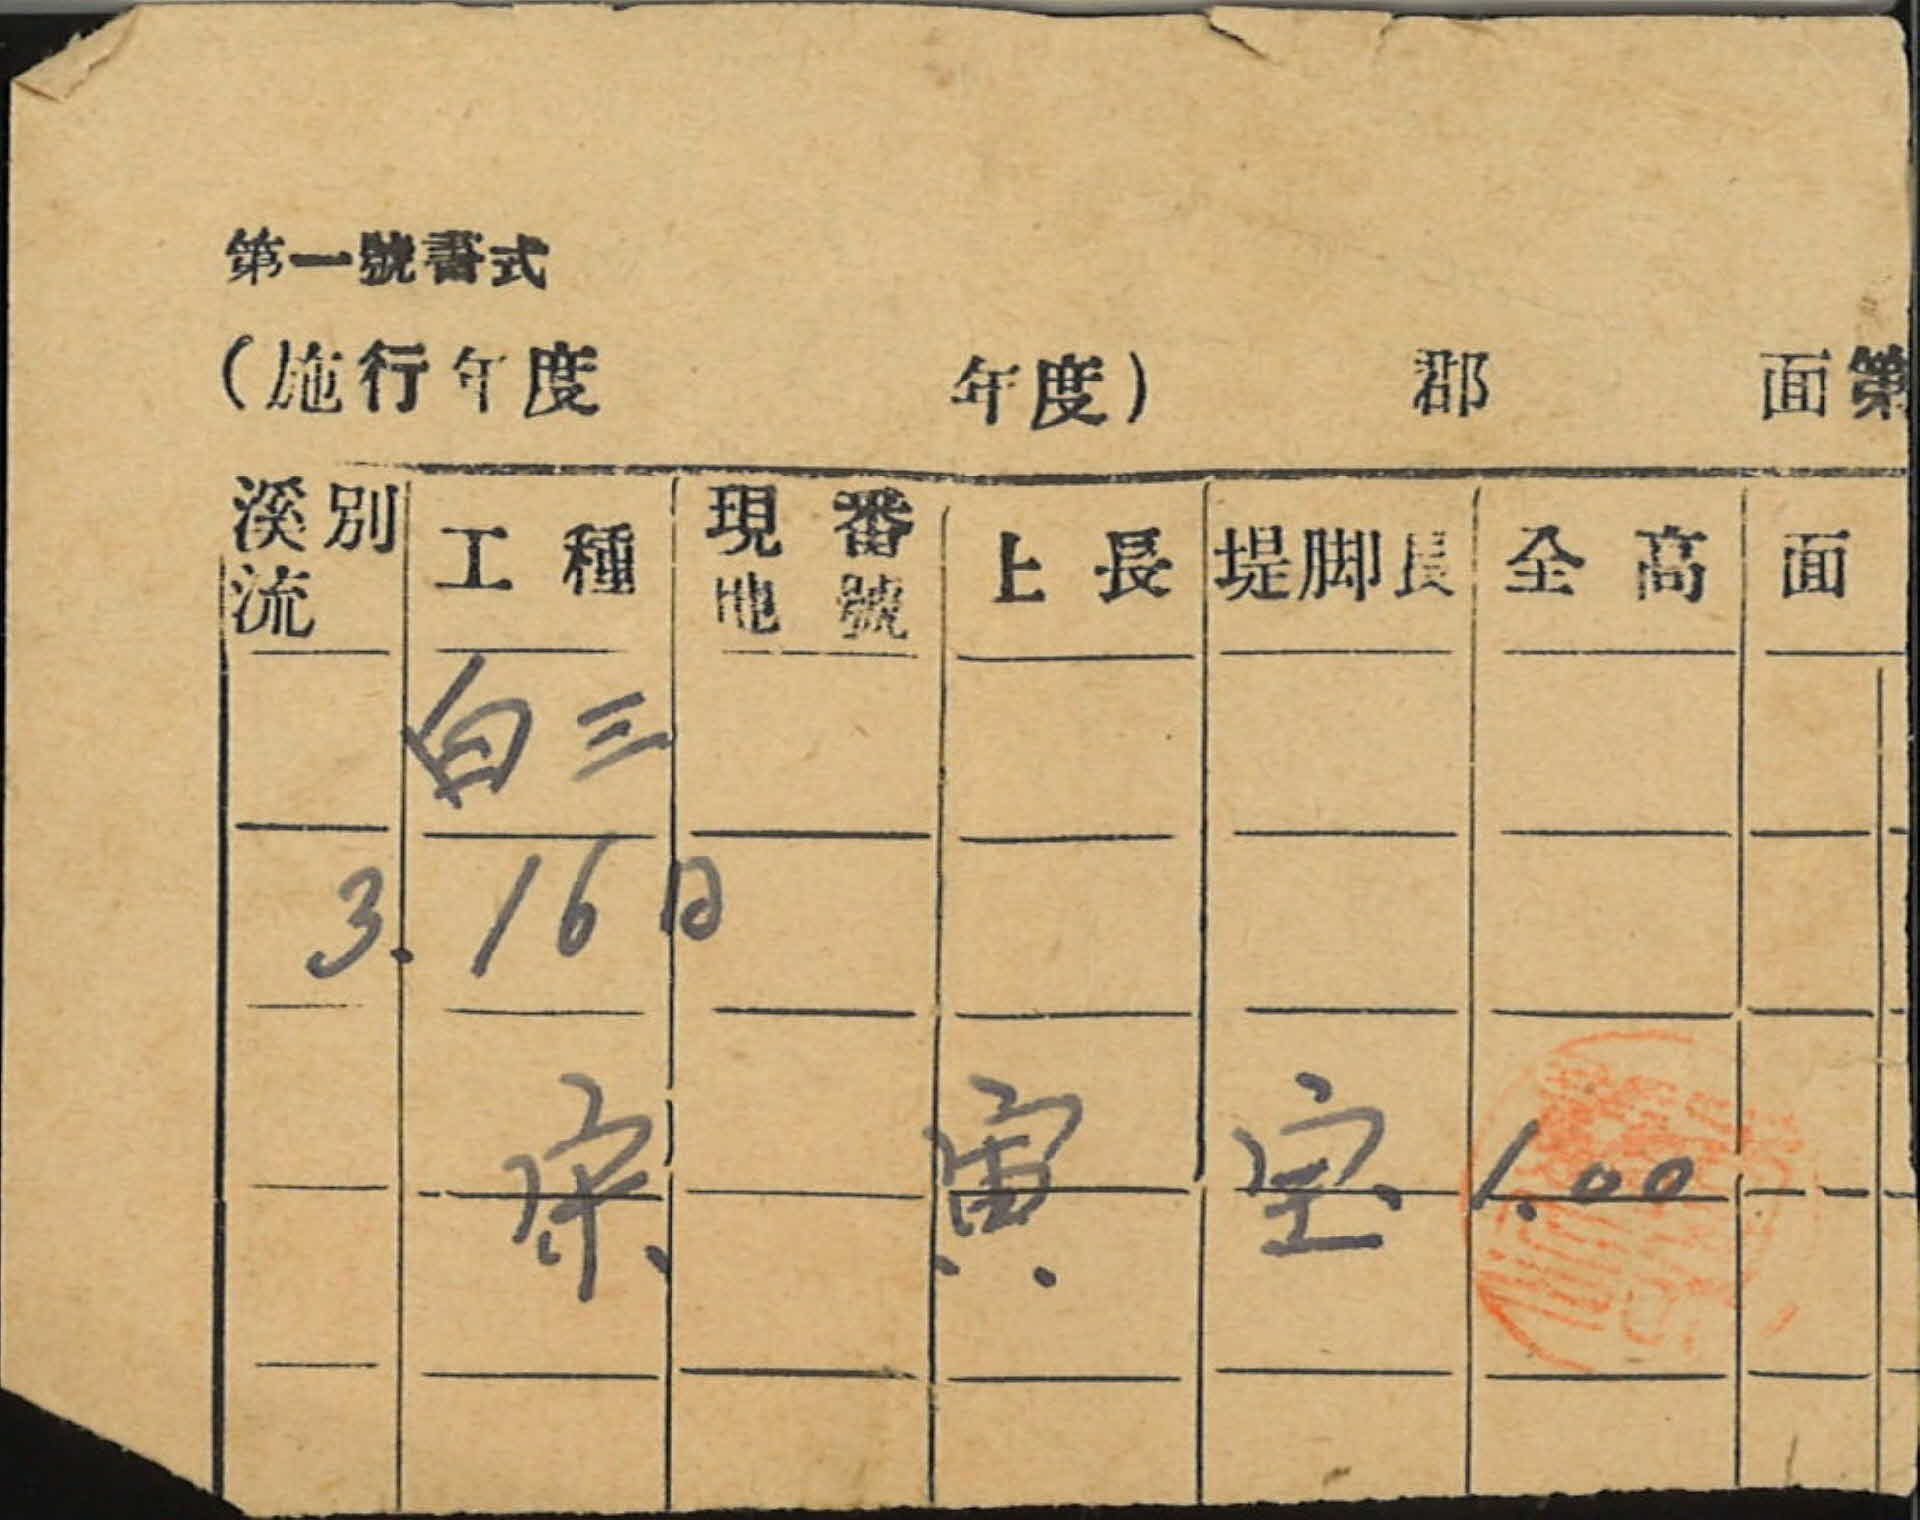 第一號書式
(施行年度 年度) 郡 面第
溪流別 工種 現地番號 上長 堤脚長 全高 面
白三
3. 16日
宗 寅 宝 1.00